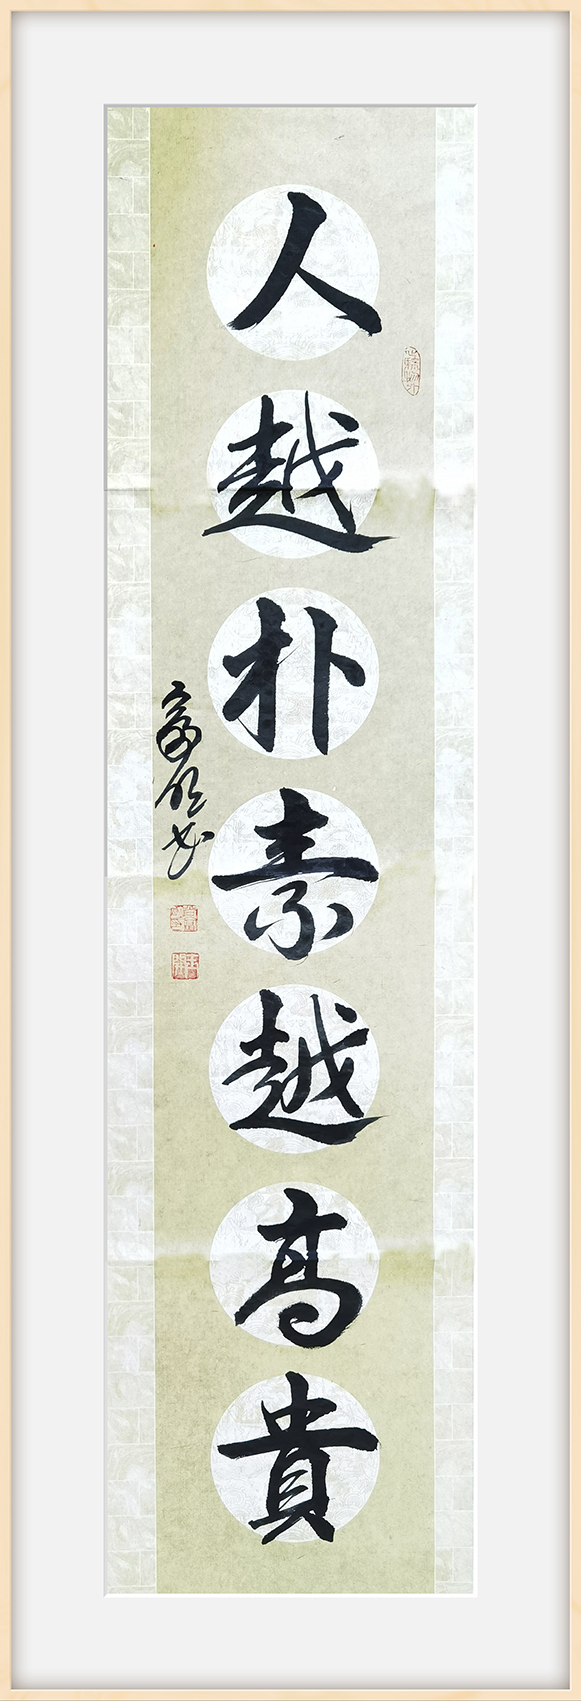 人越朴素越高貴